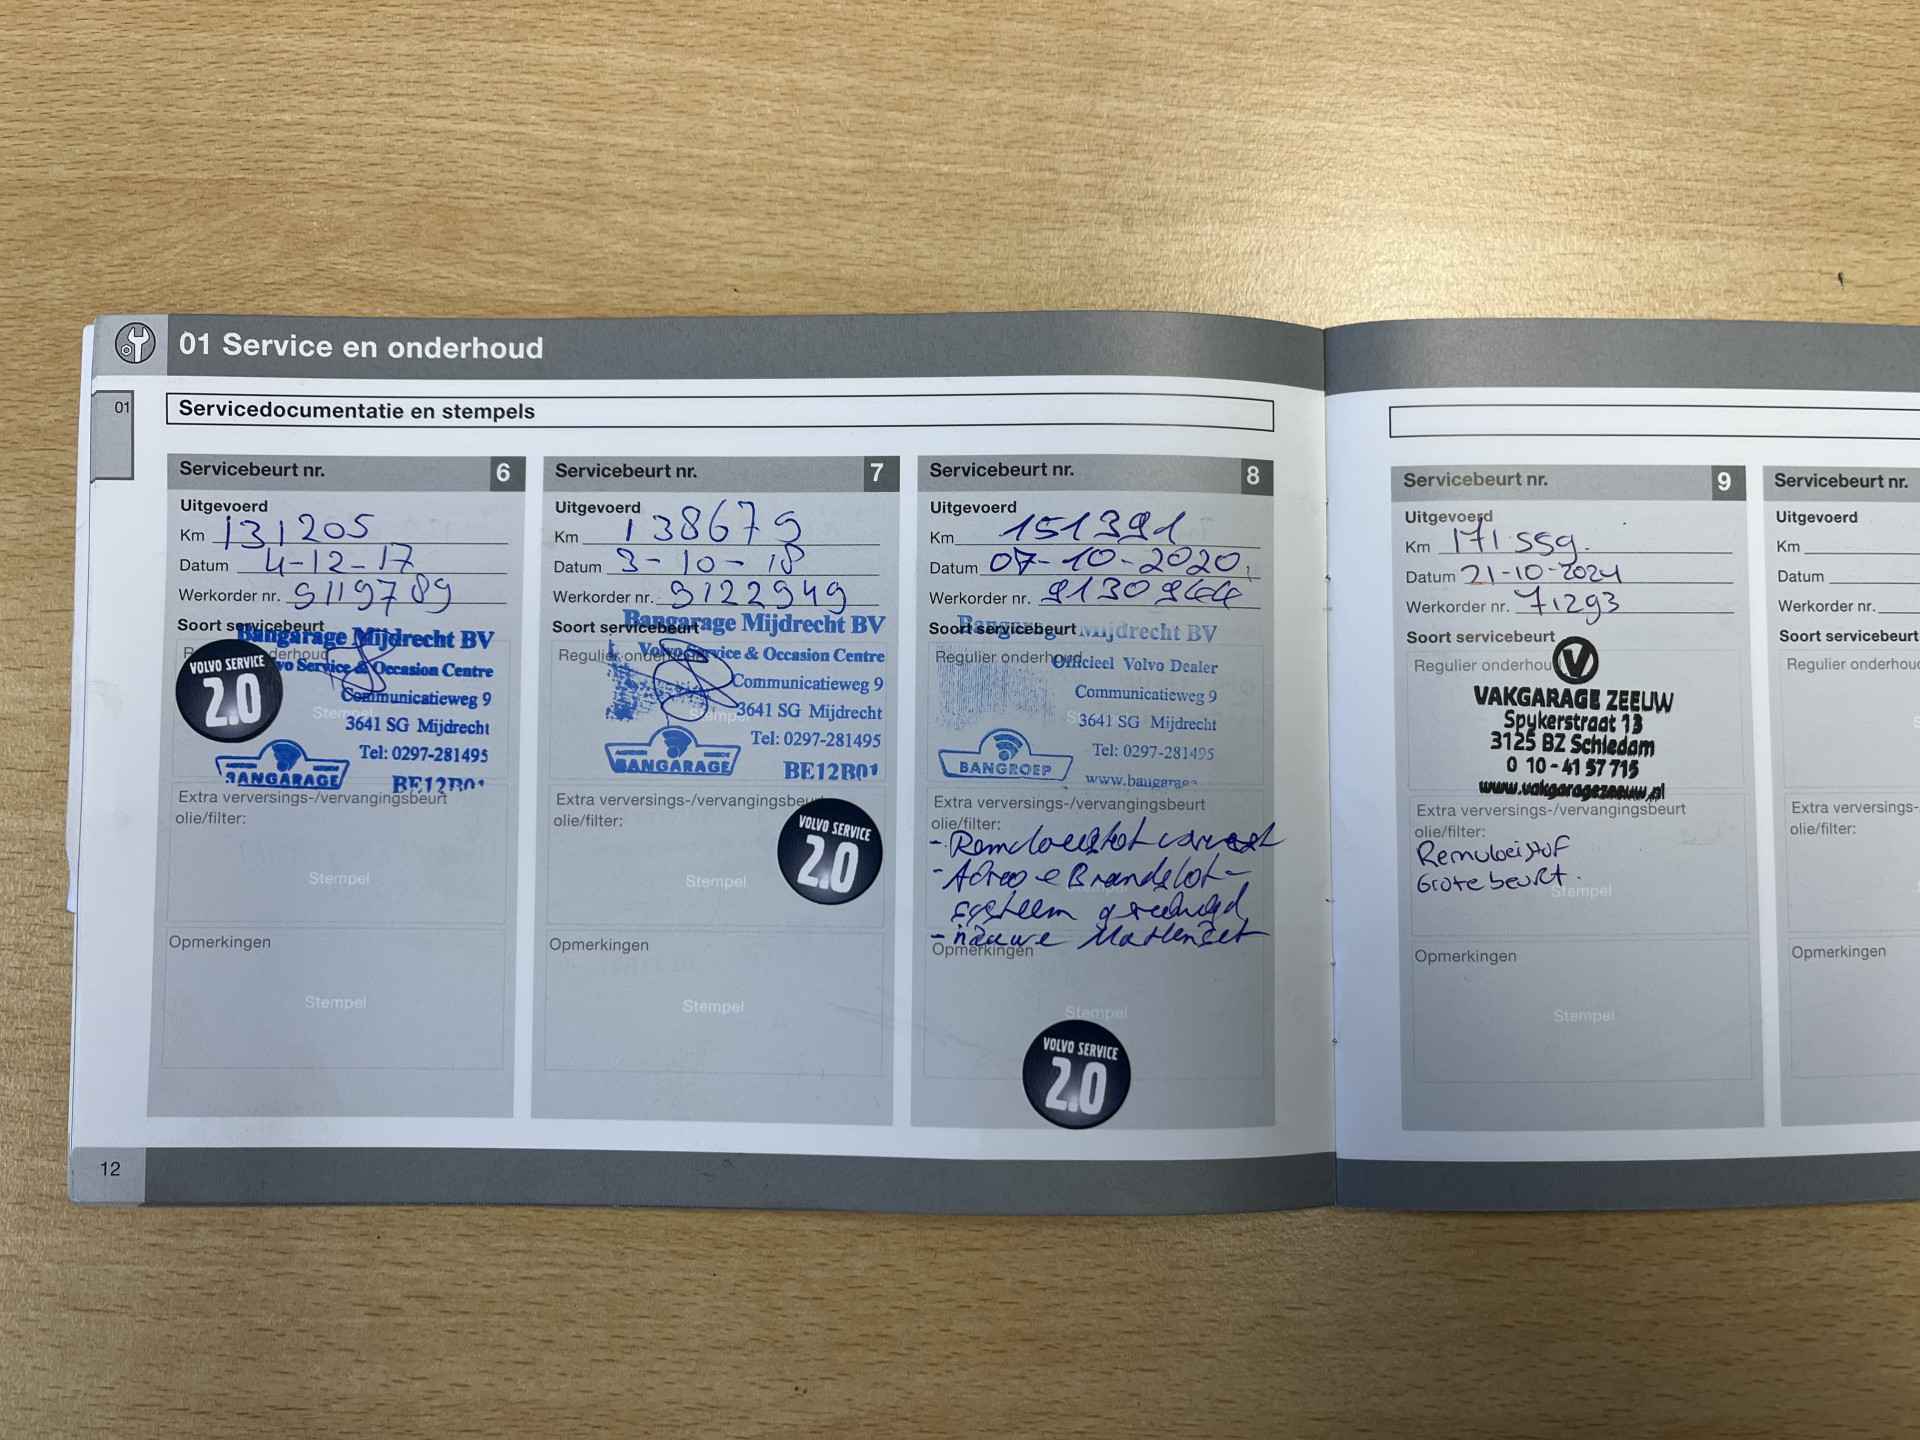 01 Service en onderhoud
01
Servicedocumentatie en stempels
Servicebeurt nr. 6
Uitgevoerd
Km 131205
Datum 4-12-17
Werkorder nr. 9119789
Soort servicebeurt
Bangarage Mijdrecht BV
Volvo Service & Occasion Centre
Communicatieweg 9
3641 SG Mijdrecht
Tel: 0297-281495
BE12B01
BANGARAGE
VOLVO SERVICE
2.0
Stempel
Extra verversings-/vervangingsbeurt
olie/filter:
Stempel
Opmerkingen
Stempel
Servicebeurt nr. 7
Uitgevoerd
Km 138679
Datum 3-10-18
Werkorder nr. 9122949
Soort servicebeurt
Bangarage Mijdrecht BV
Regulier onderhoud
Volvo Service & Occasion Centre
Communicatieweg 9
Stempel
3641 SG Mijdrecht
Tel: 0297-281495
BE12B01
BANGARAGE
Extra verversings-/vervangingsbeurt
olie/filter:
VOLVO SERVICE
2.0
Stempel
Opmerkingen
Stempel
Servicebeurt nr. 8
Uitgevoerd
Km 151391
Datum 07-10-2020
Werkorder nr. 9130944
Soort servicebeurt
Bangarage Mijdrecht BV
Regulier onderhoud
Officieel Volvo Dealer
Communicatieweg 9
3641 SG Mijdrecht
Tel: 0297-281495
BANGROEP
Extra verversings-/vervangingsbeurt
olie/filter:
- Remvloeistof
- Airco e Brandstof-
systeem gereinigd
- nieuwe Mattenset
Opmerkingen
Stempel
VOLVO SERVICE
2.0
Servicebeurt nr. 9
Uitgevoerd
Km 171559.
Datum 21-10-2024
Werkorder nr. 71293
Soort servicebeurt
Regulier onderhoud
V
VAKGARAGE ZEEUW
Spykerstraat 13
3125 BZ Schiedam
0 10 - 41 57 715
www.vakgaragezeeuw.nl
Extra verversings-/vervangingsbeurt
olie/filter:
Remvloeistof
Grote beurt.
Stempel
Opmerkingen
Stempel
Servicebeurt nr.
Uitgevoerd
Km
Datum
Werkorder nr.
Soort servicebeurt
Regulier onderhoud
Extra verversings-
olie/filter:
Opmerkingen
12